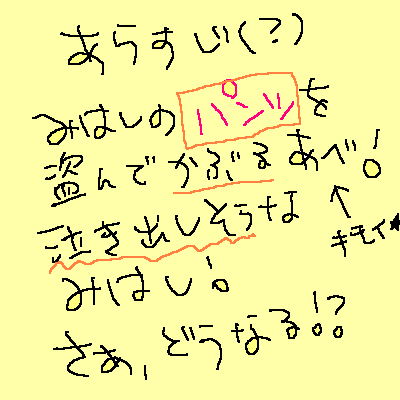 あらすじ(?)
みはしのパンツを
盗んでかぶるあべ!
泣き出しそうな
キモイ★
みはし!
さあ、どうなる!?